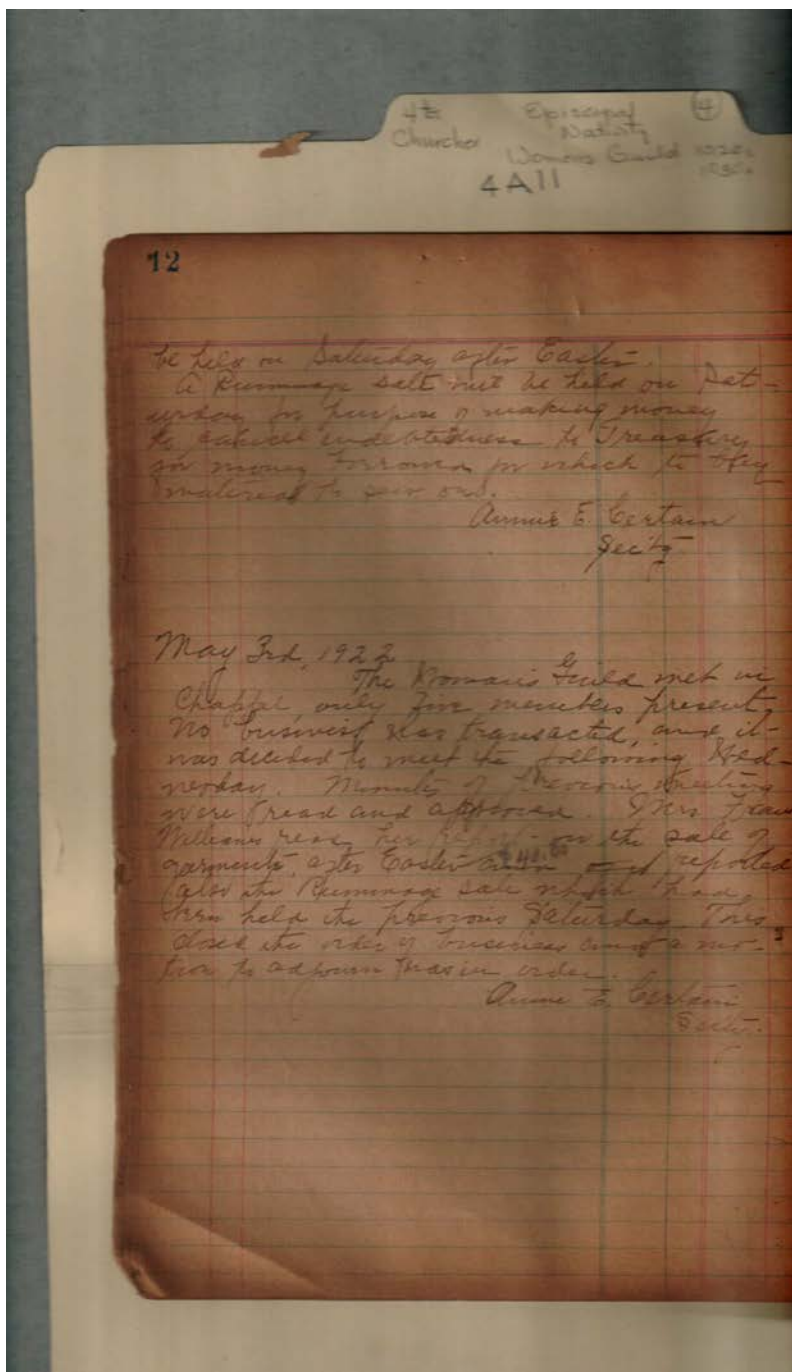 4th Episcopal 4
Churches Nativity
Womens Guild 1920s
1930s
4A11
12
be held on Saturday after Easter.
A Rummage sale will be held on Sat-
urday for purpose of making money
to cancel indebtedness to Treasury
for money borrowed in which to buy
material to sew on.
Annie E. Certain
Sec'ty
May 3rd, 1922
The Woman's Guild met in
Chapel, only five members present,
No business was transacted, and it
was decided to meet the following Wed-
nesday. Minutes of previous meeting
were read and approved. Mrs
Williams read her report on the sale of
garments, after Easter $40.00 reported
also the Rummage sale which had
been held the previous Saturday. This
closed the order of business and a mo-
tion to adjourn was in order.
Annie E. Certain
Sec'ty.